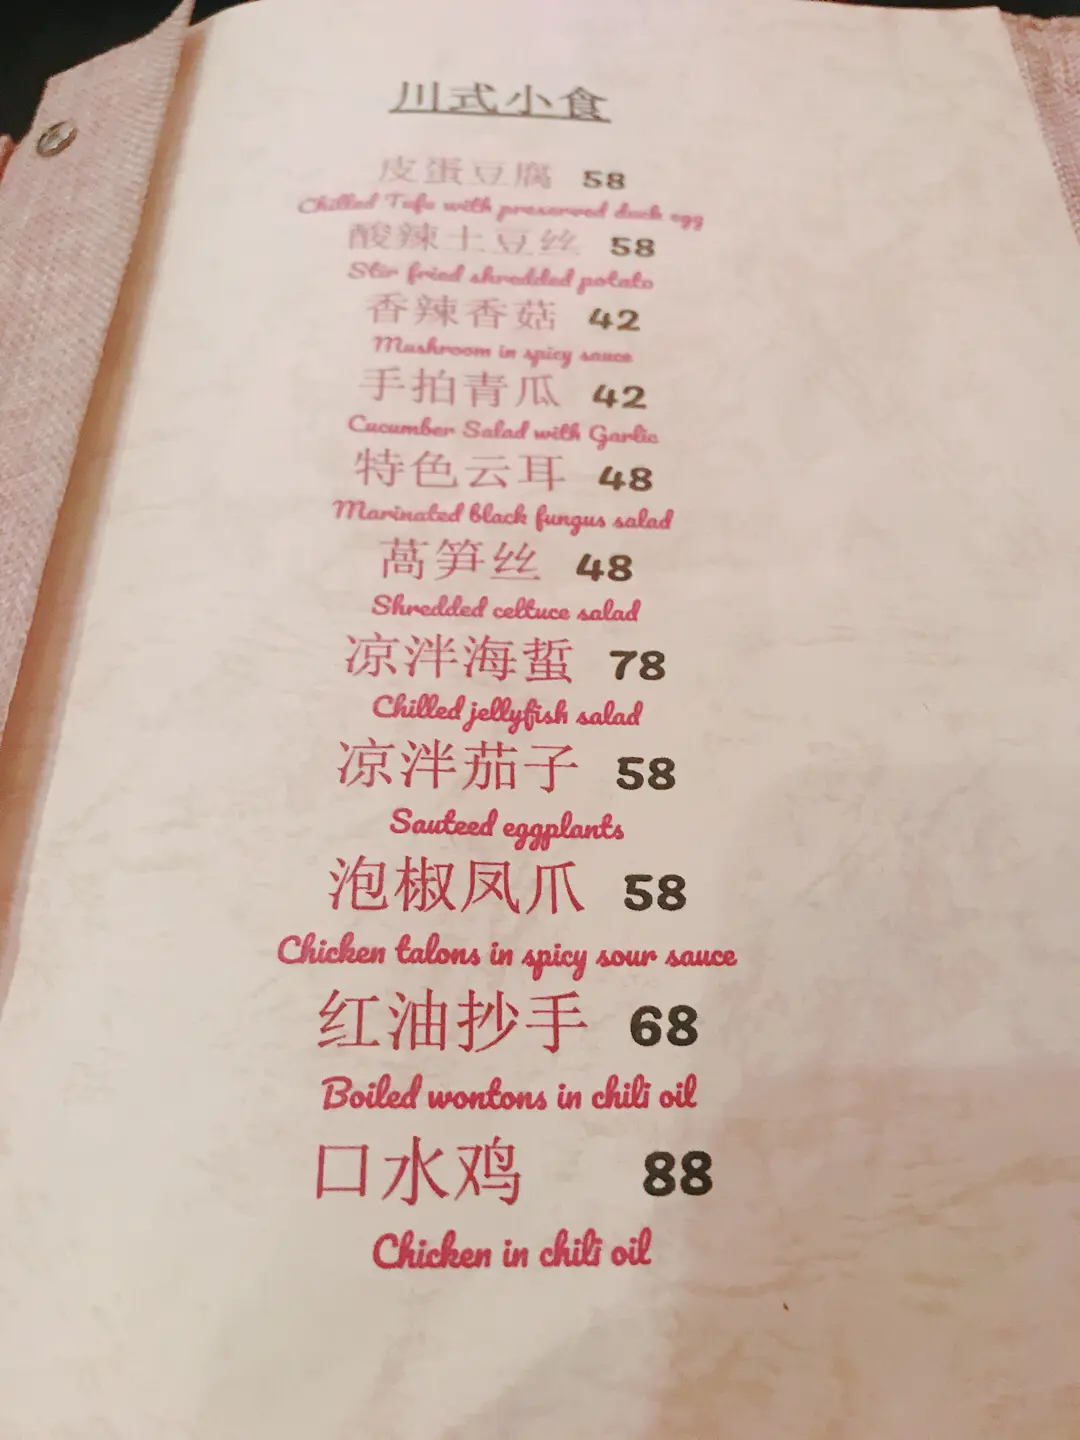 川式小食
皮蛋豆腐 58
Chilled Tofu with preserved duck egg
酸辣土豆丝 58
Stir fried shredded potato
香辣香菇 42
Mushroom in spicy sauce
手拍青瓜 42
Cucumber Salad with Garlic
特色云耳 48
Marinated black fungus salad
萵笋丝 48
Shredded celtuce salad
凉泮海蜇 78
Chilled jellyfish salad
凉泮茄子 58
Sauteed eggplants
泡椒凤爪 58
Chicken talons in spicy sour sauce
红油抄手 68
Boiled wontons in chili oil
口水鸡 88
Chicken in chili oil